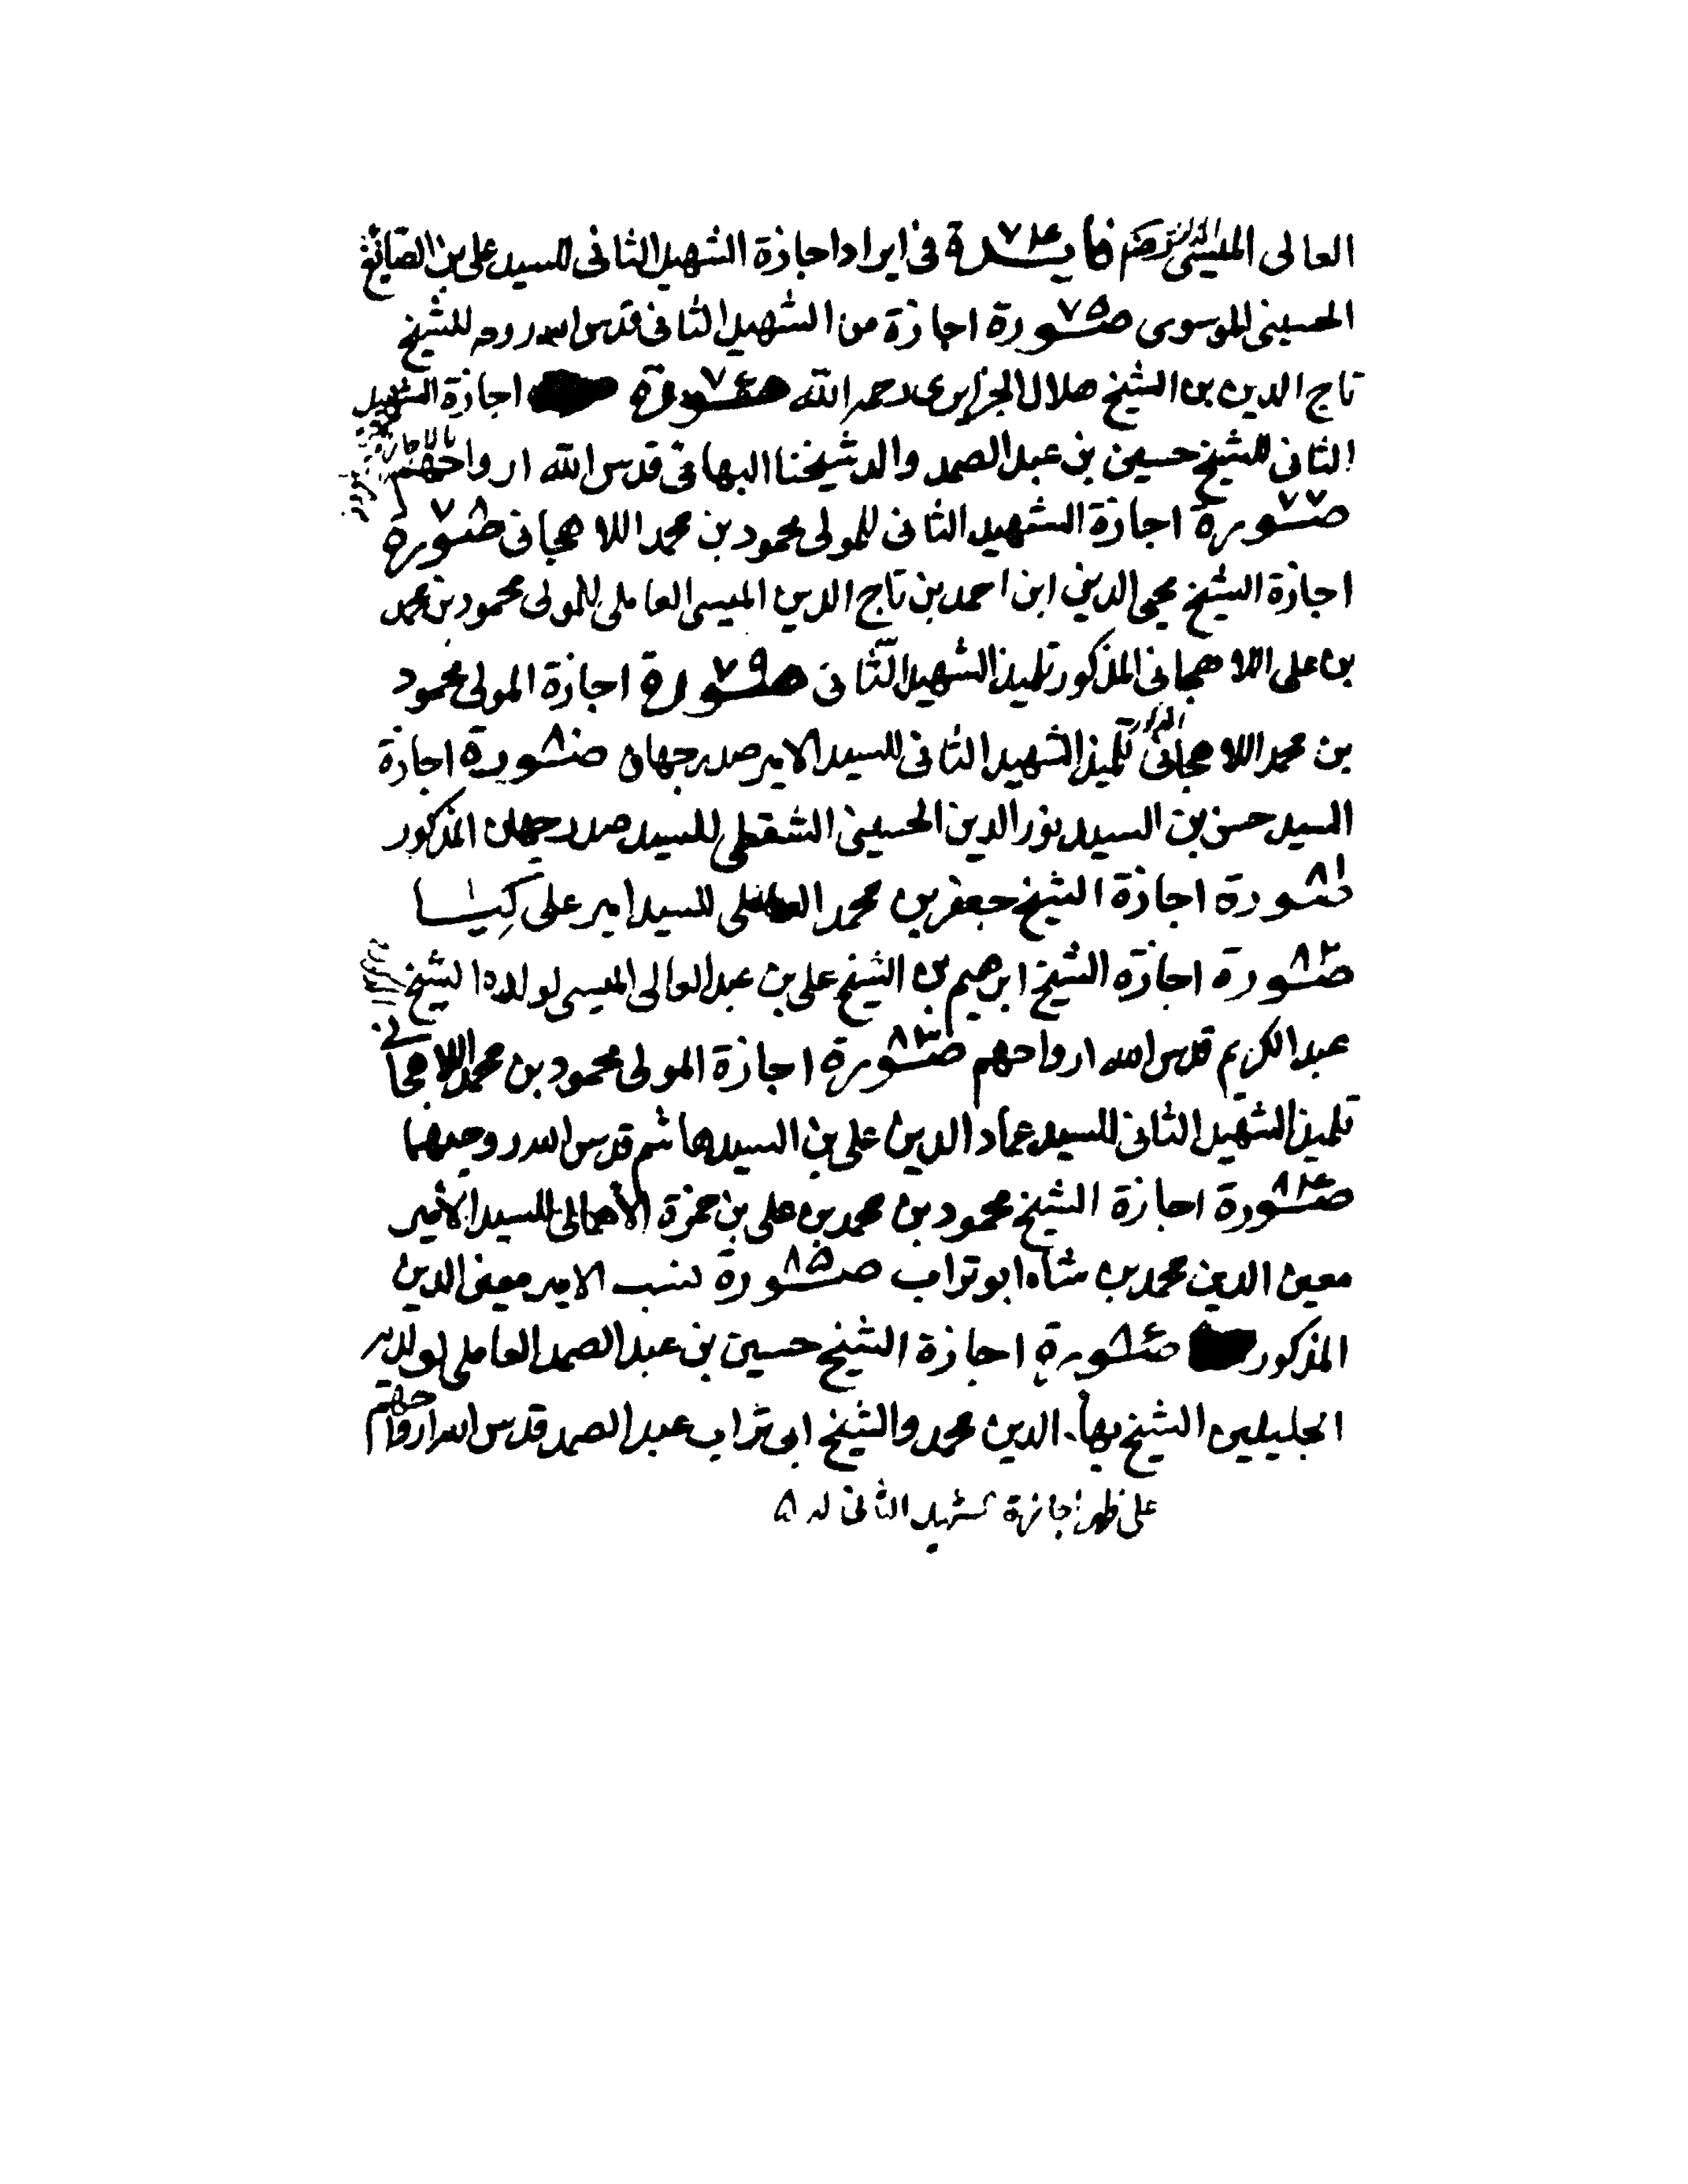 العالى الميسى فايدة ٧٤ فى ايراد اجازة الشهيد الثانى للسيد على بن الصايغ
الحسينى الموسوى صورة ٧٥ اجازة من الشهيد الثانى قدس الله روحه للشيخ
تاج الدين بن الشيخ هلال الجزايرى رحمه الله صورة ٧٦ اجازة الشهيد
الثانى للشيخ حسين بن عبد الصمد والد شيخنا البهائى قدس الله ارواحهم
صورة ٧٧ اجازة الشهيد الثانى للمولى محمود بن محمد اللاهجانى صورة ٧٨
اجازة الشيخ محيى الدين ابن احمد بن تاج الدين الميسى العاملى للمولى محمود بن محمد
بن على اللاهجانى المذكور تلميذ الشهيد الثانى صورة ٧٩ اجازة المولى محمود
بن محمد اللاهجانى المذكور تلميذ الشهيد الثانى للسيد الامير صدر جهان صورة ٨٠ اجازة
السيد حسن بن السيد نور الدين الحسينى الشقطى للسيد صدر جهان المذكور
صورة ٨١ اجازة الشيخ جعفر بن محمد العاملى للسيد امير على كيا
صورة ٨٢ اجازة الشيخ ابرهيم بن الشيخ على بن عبد العالى الميسى لولده الشيخ
عبد الكريم قدس الله ارواحهم صورة ٨٣ اجازة المولى محمود بن محمد اللاهجانى
تلميذ الشهيد الثانى للسيد عماد الدين على بن السيد هاشم قدس الله روحيهما
صورة ٨٤ اجازة الشيخ محمود بن محمد بن على بن حمزة للسيد الامير
معين الدين محمد بن شاه ابو تراب صورة ٨٥ نسب الامير معين الدين
المذكور صورة ٨٦ اجازة الشيخ حسين بن عبد الصمد العاملى لولديه
الجليلين الشيخ بهاء الدين محمد والشيخ ابى تراب عبد الصمد قدس الله ارواحهم
على ظهر اجازة الشهيد الثانى له